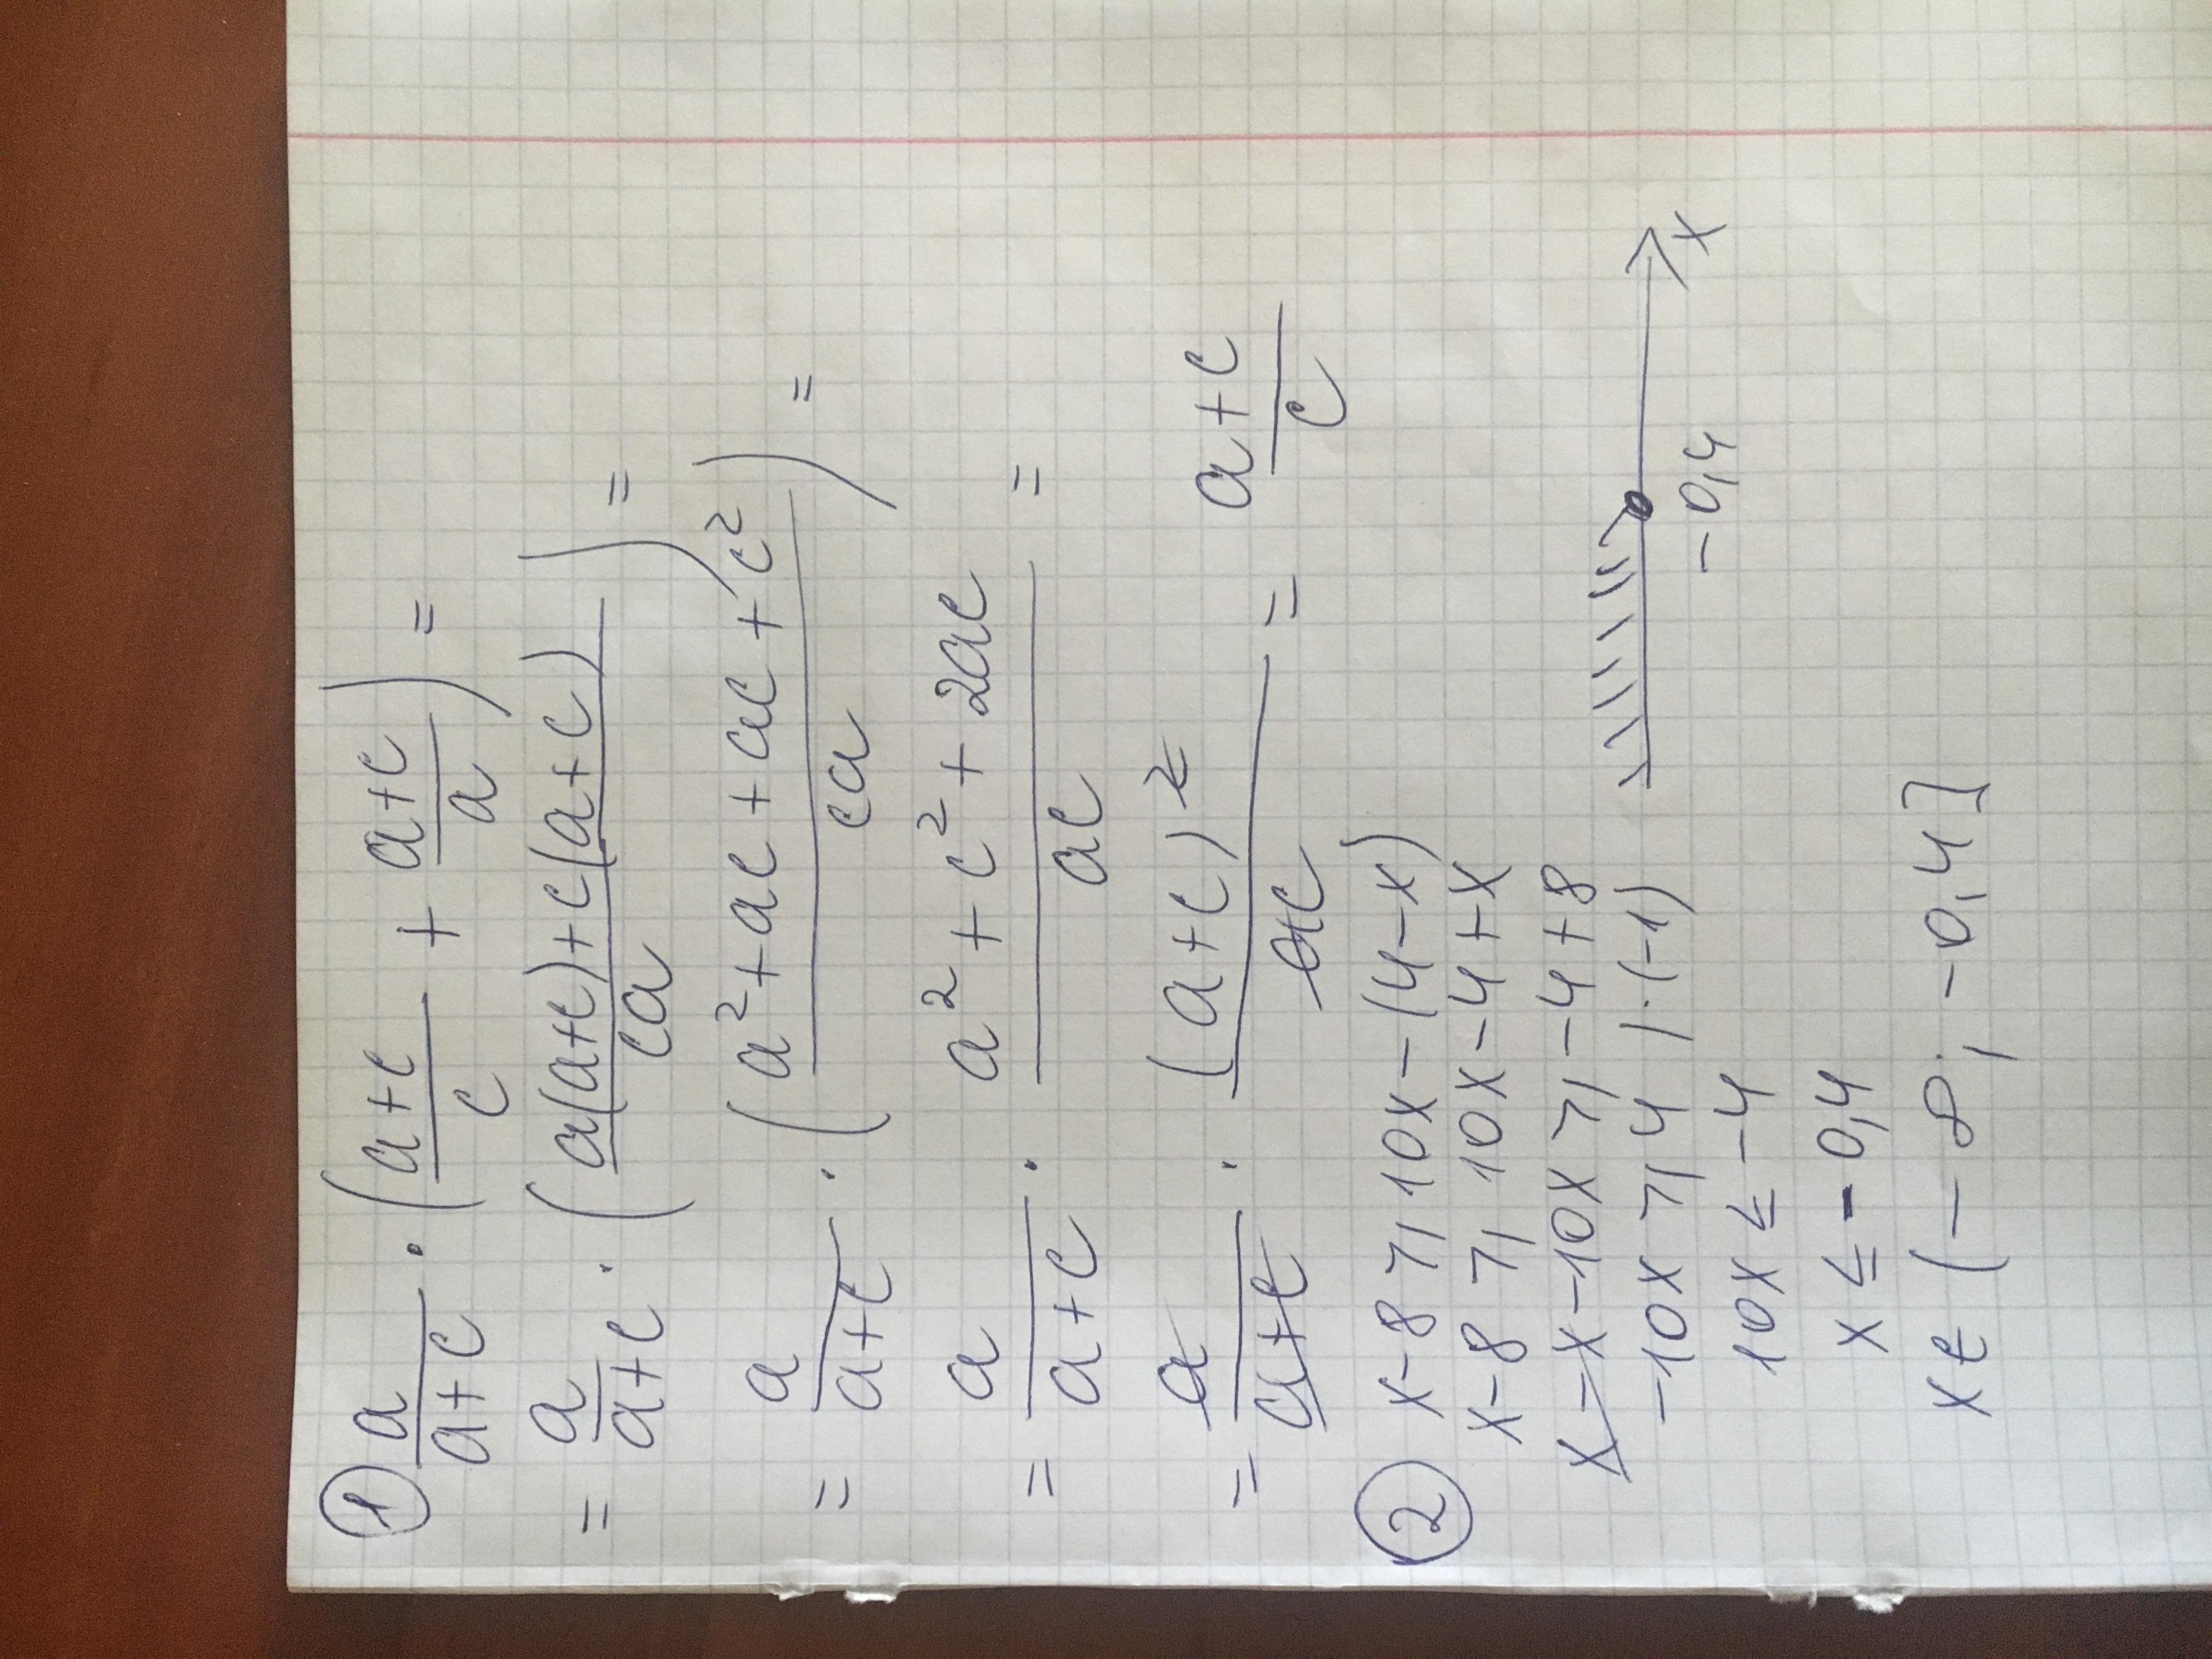 ① a/(a+c) · ((a+c)/c + (a+c)/a) =
= a/(a+c) · ((a(a+c)+c(a+c))/ca) =
= a/(a+c) · ((a²+ac+ac+c²)/ca) =
= a/(a+c) · (a²+c²+2ac)/ac =
= a/(a+c) · (a+c)²/ac = (a+c)/c
② x-8 ≥ 10x-(4-x)
x-8 ≥ 10x-4+x
x-x-10x ≥ -4+8
-10x ≥ 4 | ·(-1)
10x ≤ -4
x ≤ -0,4
-0,4 x
x ∈ (-∞; -0,4]